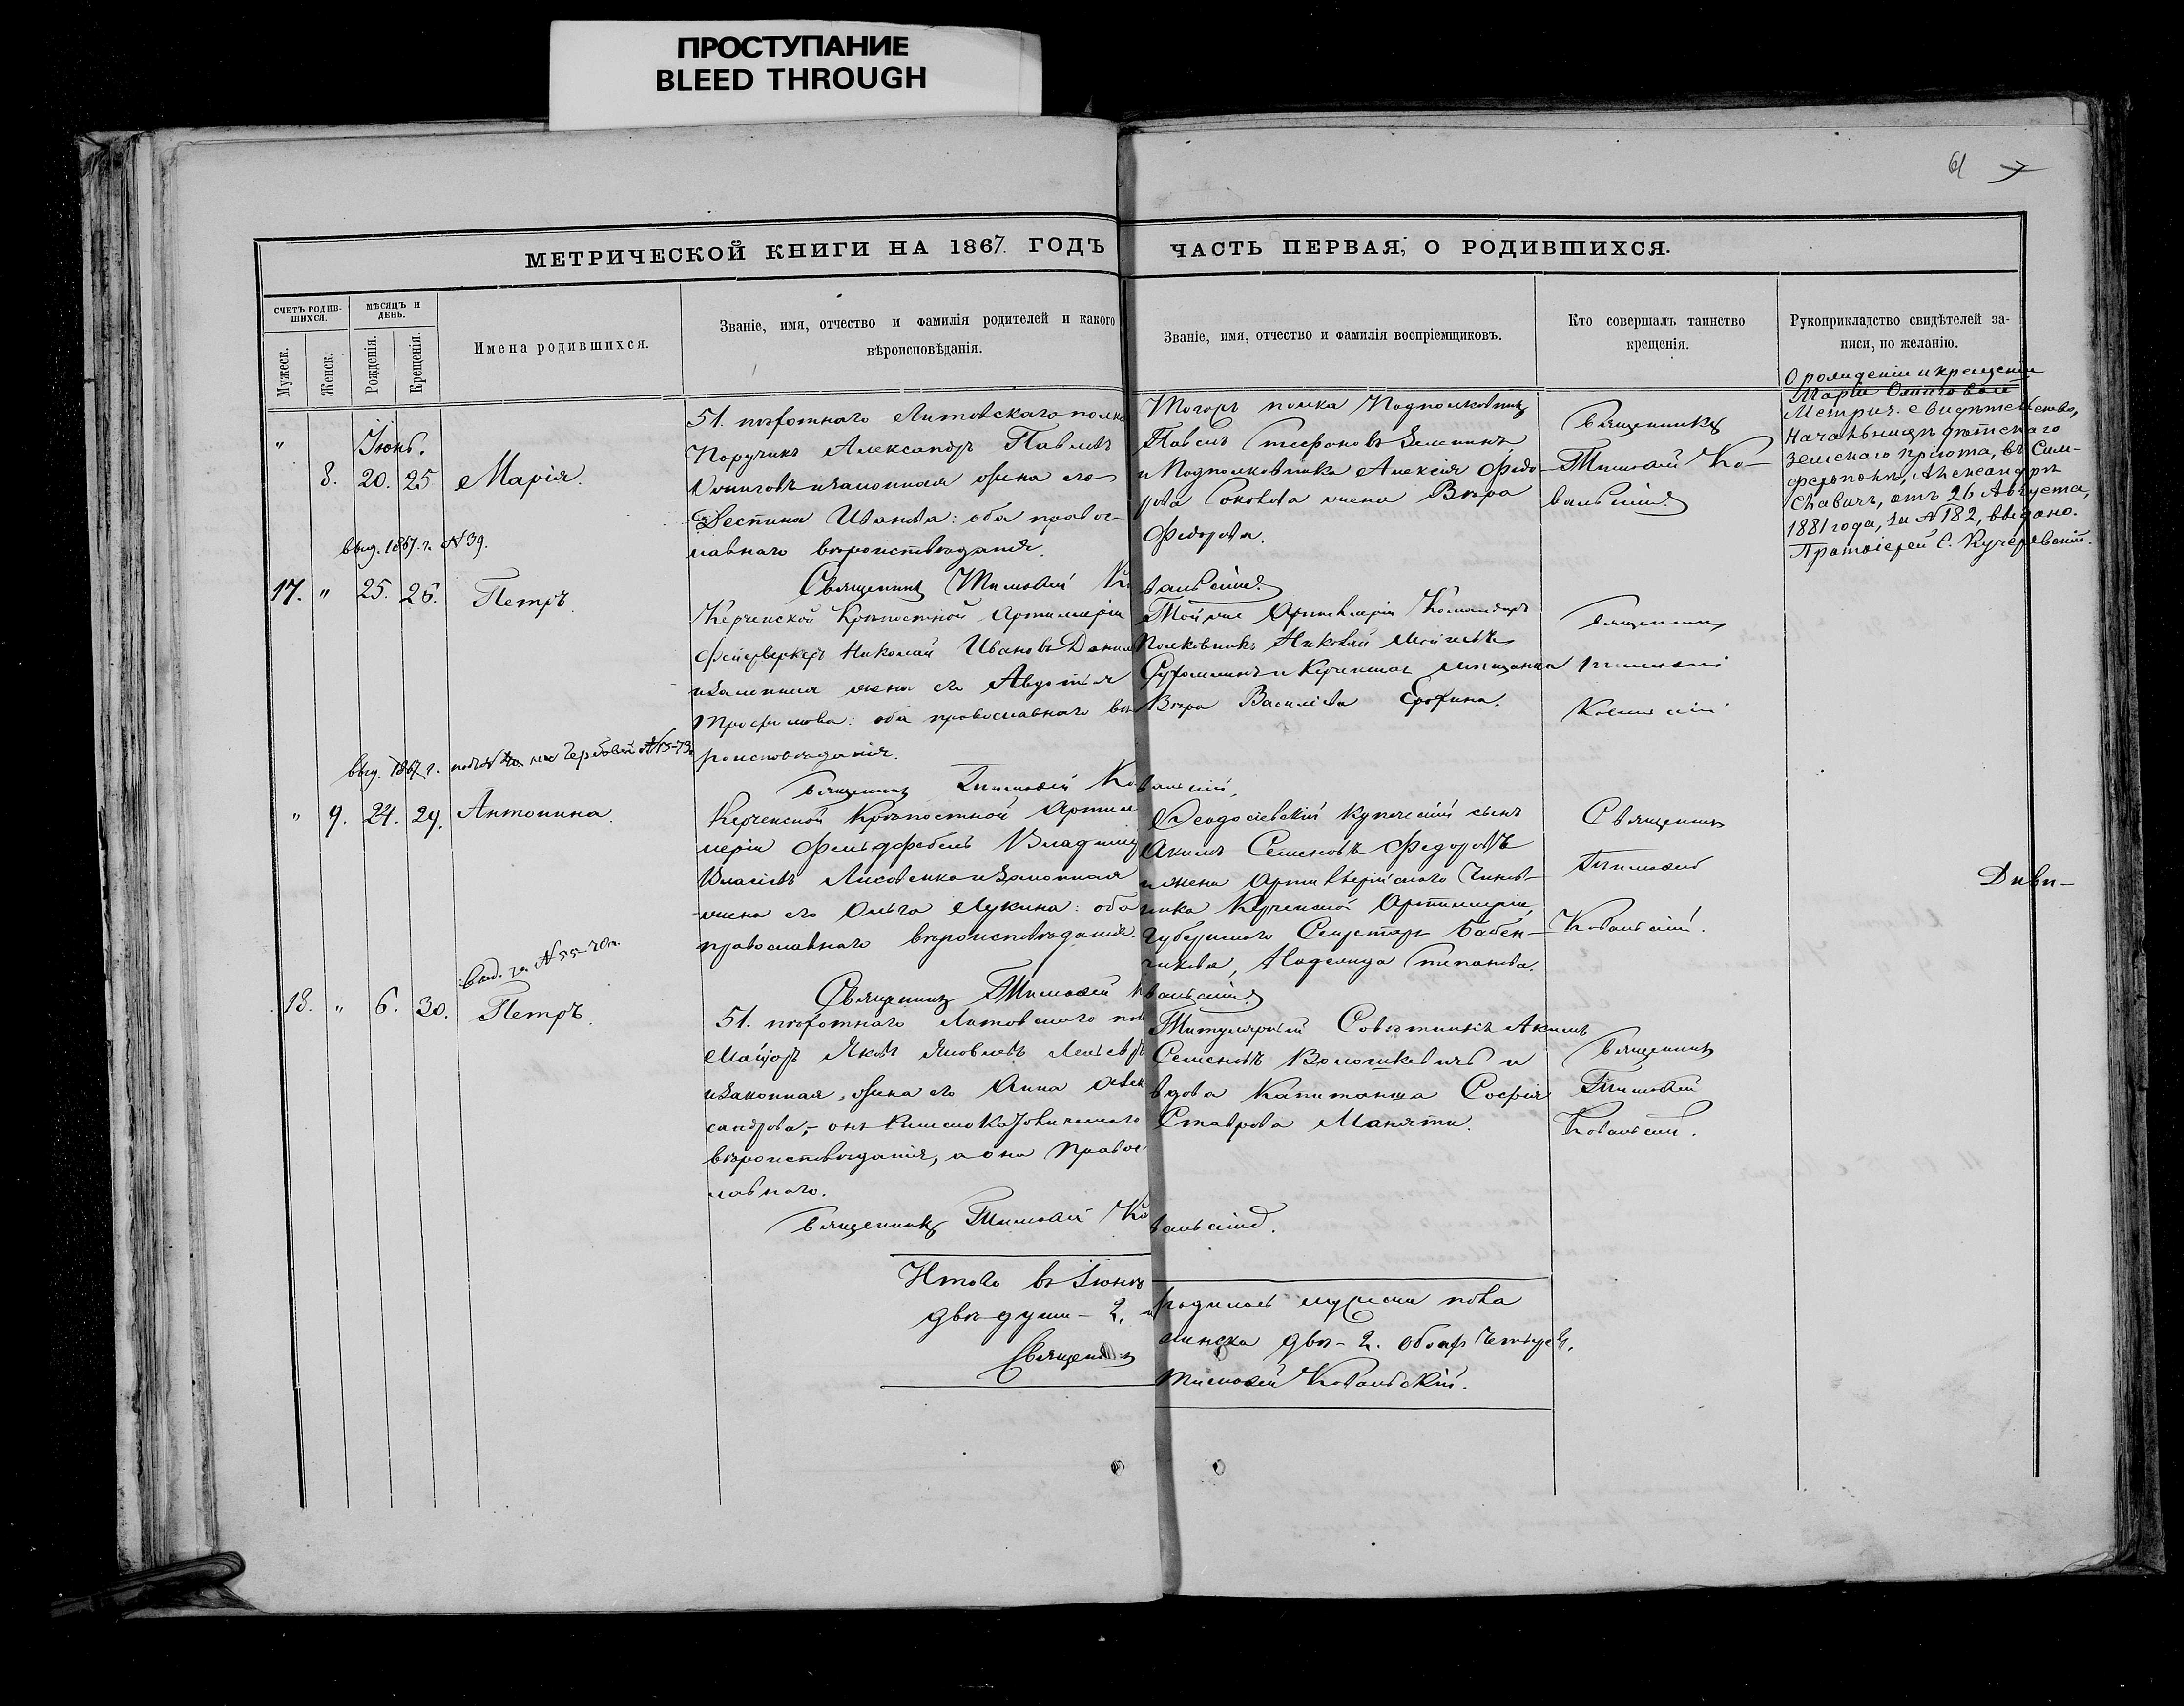 ПРОСТУПАНИЕ
BLEED THROUGH
61
МЕТРИЧЕСКОЙ КНИГИ НА 1867 ГОДЪ
ЧАСТЬ ПЕРВАЯ, О РОДИВШИХСЯ.
СЧЕТЪ РОДИВ-
ШИХСЯ.
Мужеск.
Женск.
МѢСЯЦЪ И
ДЕНЬ.
Рожденія.
Крещенія.
Имена родившихся.
Званіе, имя, отчество и фамилія родителей и какого
вѣроисповѣданія.
Званіе, имя, отчество и фамилія воспріемщиковъ.
Кто совершалъ таинство
крещенія.
Рукоприкладство свидѣтелей за-
писи, по желанію.
"
Іюнь.
8. 20. 25. Марія.
выд. 1867. г. N 39.
51. пѣхотнаго Литовскаго полка
Поручикъ Александръ Павловъ
и законная жена его
Деспина Иванова: оба правос-
лавнаго вѣроисповѣданія.
Священникъ Тимоѳей Ко
Тогожъ полка Подполковникъ
Павелъ Стефановъ Зеленинъ
и Подполковника Алексія Федо-
рова Соколова жена Вѣра
Федорова.
вальскій.
Священникъ
Тимоѳей Ко-
вальскій.
О рожденіи и крещеніи
Маріи
Метрич. свидѣтельство,
Начальницѣ дѣтскаго
земскаго пріюта, въ Сим-
ферополѣ, Александрѣ
Славичъ, отъ 26 Августа,
1881 года, за N 182, выдано.
Протоіерей С. Кучеревскій.
17. " 25. 26. Петръ.
выд. 1867 г.
Керченской Крѣпостной Артиллеріи
Фейерверкеръ Николай Ивановъ
и законная жена его Авдотія
Трофимова: оба православнаго вѣ
роисповѣданія.
Священникъ Тимоѳей Ко
Той же Артиллеріи Командиръ
Полковникъ Николай
и Керченская мѣщанка
Вѣра Васильева Ерохина.
вальскій.
Священникъ
Тимоѳей
Ковальскій
" 9. 24. 29. Антонина.
выд. за N 55-70 г.
Керченской Крѣпостной Артил
леріи Фельдфебель Владиміръ
Власовъ Лисовенко и законная
жена его Ольга Лукина: оба
православнаго вѣроисповѣданія.
Священникъ Тимоѳей К
Ѳеодосіевскій купеческій сынъ
Акимъ Семеновъ Федоровъ
и жена Артиллерійскаго Чинов-
ника Керченской Артиллеріи,
Губернскаго Секретаря Бабен-
чикова, Надежда Степанова.
вальскій.
Священникъ
Тимоѳей
Ковальскій.
Диви-
18. " 6. 30. Петръ.
51. пѣхотнаго Литовскаго пол
Маіоръ Яковъ Яковлевъ
и законная жена его Анна Алек
сандрова, - онъ Римскокатолическаго
вѣроисповѣданія, а она Правос
лавнаго.
Священникъ Тимоѳей Ко
Титулярный Совѣтникъ Акимъ
Семеновъ Волошкевичъ и
вдова Капитанша Софія
Ставрова Манѳти.
вальскій.
Священникъ
Тимоѳей
Ковальскій.
Итого въ Іюнѣ
двѣ души - 2, и
Священникъ
родилось мужеска пола
женска двѣ - 2. обоихъ четыре 4.
Тимоѳей Ковальскій.